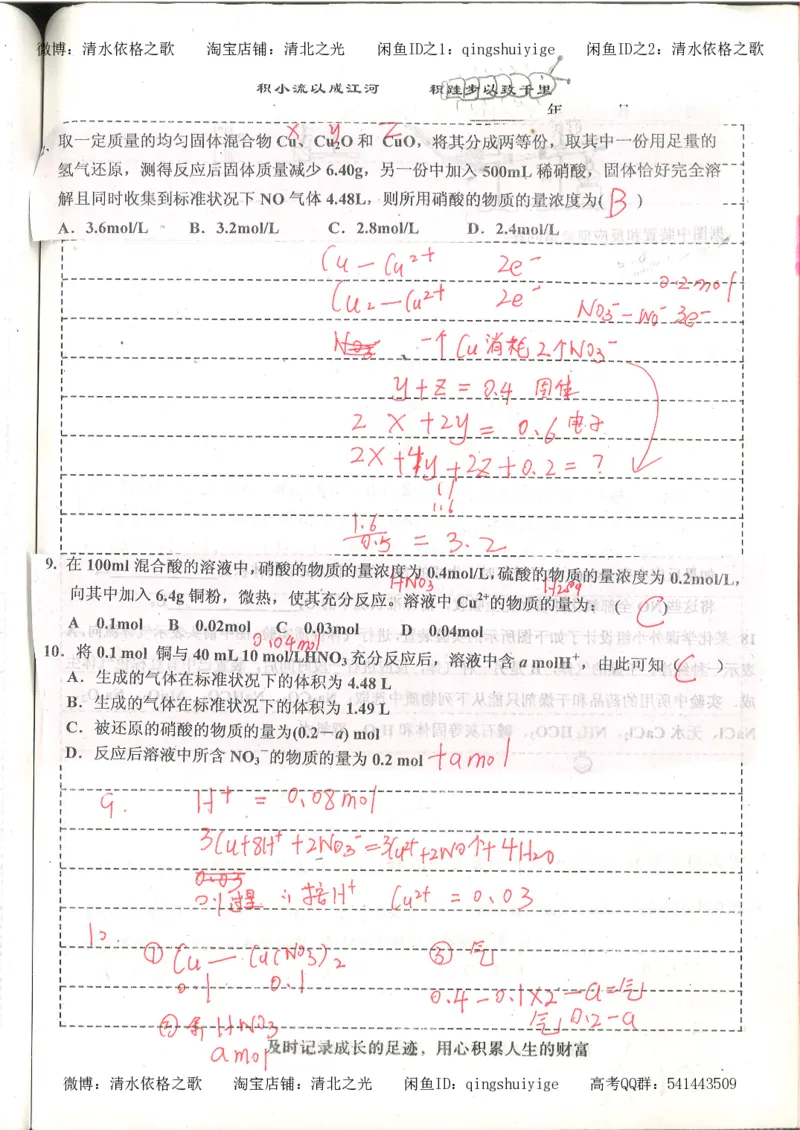 微博：清水依格之歌 淘宝店铺：清北之光 闲鱼ID之1：qingshuiyige 闲鱼ID之2：清水依格之歌
积小流以成江河 积跬步以致千里
年
x y z
取一定质量的均匀固体混合物 Cu、Cu₂O 和 CuO，将其分成两等份，取其中一份用足量的
氢气还原，测得反应后固体质量减少 6.40g，另一份中加入 500mL 稀硝酸，固体恰好完全溶
解且同时收集到标准状况下 NO 气体 4.48L，则所用硝酸的物质的量浓度为( B )
A．3.6mol/L B．3.2mol/L C．2.8mol/L D．2.4mol/L
Cu — Cu²⁺ 2e⁻
0.2mol
Cu₂ — Cu²⁺ 2e⁻ NO₃⁻ — NO 3e⁻
一个Cu消耗2个NO₃⁻
y+z = 0.4 固体
2x+2y = 0.6 电子
2x+4y+2z+0.2 = ?
1.6
1.6/0.5 = 3.2
9. 在 100ml 混合酸的溶液中，硝酸的物质的量浓度为 0.4mol/L，硫酸的物质的量浓度为 0.2mol/L，
HNO₃ H₂SO₄
向其中加入 6.4g 铜粉，微热，使其充分反应。溶液中 Cu²⁺的物质的量为：( C )
A 0.1mol B 0.02mol C 0.03mol D 0.04mol
0.04mol
10．将 0.1 mol 铜与 40 mL 10 mol/LHNO₃ 充分反应后，溶液中含 a molH⁺，由此可知( C )
A．生成的气体在标准状况下的体积为 4.48 L
B．生成的气体在标准状况下的体积为 1.49 L
C．被还原的硝酸的物质的量为(0.2－a) mol
D．反应后溶液中所含 NO₃⁻的物质的量为 0.2 mol +a mol
9. H⁺ = 0.08mol
3Cu+8H⁺+2NO₃⁻=3Cu²⁺+2NO↑+4H₂O
0.03
0.1过量 ∴按H⁺ Cu²⁺ = 0.03
10.
① Cu — Cu(NO₃)₂ ③ 气
0.1 0.1
0.4-0.1×2-a=气
② 余HNO₃ 气 0.2-a
a mol
及时记录成长的足迹，用心积累人生的财富
微博：清水依格之歌 淘宝店铺：清北之光 闲鱼ID：qingshuiyige 高考QQ群：541443509